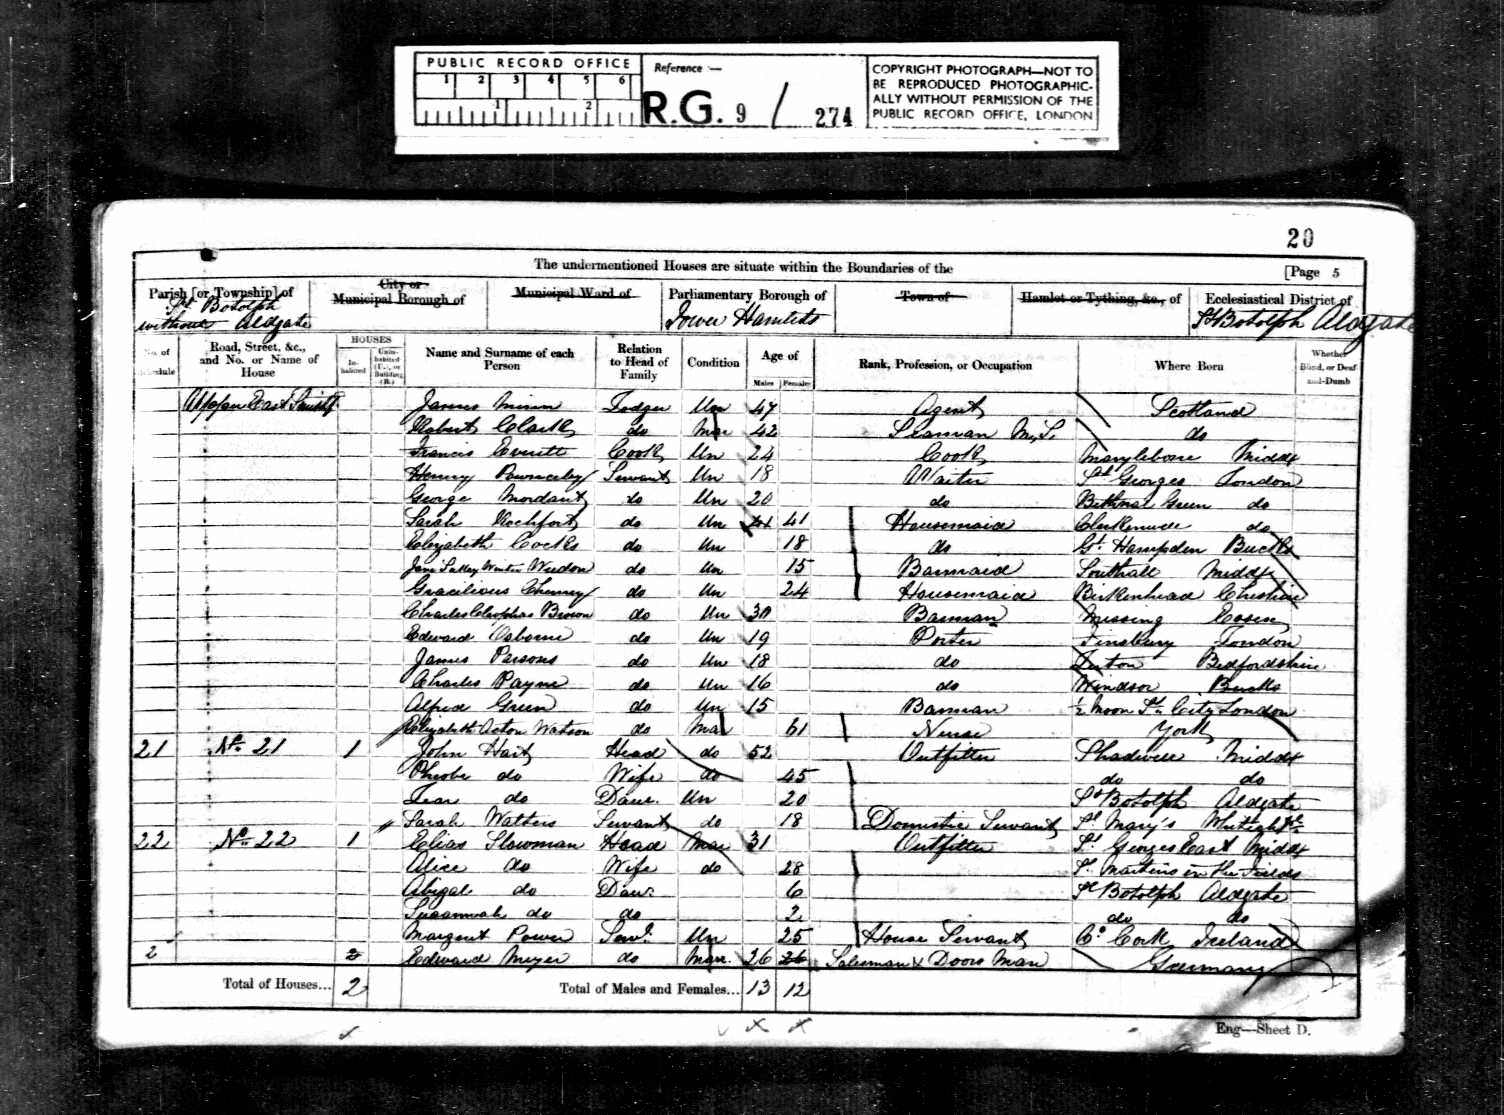 PUBLIC RECORD OFFICE
1 2 3 4 5 6
1 2
Reference :—
R.G. 9 / 274
COPYRIGHT PHOTOGRAPH—NOT TO
BE REPRODUCED PHOTOGRAPHIC-
ALLY WITHOUT PERMISSION OF THE
PUBLIC RECORD OFFICE, LONDON
20
The undermentioned Houses are situate within the Boundaries of the [Page 5
Parish [or Township] of City or Municipal Borough of Municipal Ward of Parliamentary Borough of Town of Hamlet or Tything, &c., of Ecclesiastical District of
St Botolph without Aldgate Tower Hamlets St Botolph Aldgate
No. of Schedule Road, Street, &c., and No. or Name of House HOUSES Inhabited Uninhabited (U.), or Building (B.) Name and Surname of each Person Relation to Head of Family Condition Age of Males Females Rank, Profession, or Occupation Where Born Whether Blind, or Deaf-and-Dumb
East James Lodger Un 47 Agent Scotland
Robert Clark do Mar 42 Seaman do
Francis Everett Cook Un 24 Cook Marylebone Middx
Henry Servant Un 18 Waiter St Georges London
George Mordaunt do Un 20 do Bethnal Green do
Sarah Rochfort do Un 41 41 Housemaid Clerkenwell do
Elizabeth Cocks do Un 18 do Gt Hampden Bucks
Jane Weedon do Un 15 Barmaid Southall Middx
Cherry do Un 24 Housemaid Birkenhead Cheshire
Charles Cleophas Brown do Un 30 Barman Messing Essex
Edward Osborne do Un 19 Porter Finsbury London
James Parsons do Un 18 do Luton Bedfordshire
Charles Payne do Un 16 do Windsor Bucks
Alfred Green do Un 15 Barman ½ Moon St City London
Elizabeth Acton Watson do Mar 61 Nurse York
21 No 21 1 John Hart Head do 52 Outfitter Shadwell Middx
Phoebe do Wife do 45 do do
do Daur. Un 20 St Botolph Aldgate
Sarah Watters Servant do 18 Domestic Servant St Mary's
22 No 22 1 Elias Slowman Head Mar 31 Outfitter St Georges East Middx
Alice do Wife do 28 St Martins in the Fields
Abigal do Daur. 6 St Botolph Aldgate
Susannah do do 2 do do
Margaret Power Servt. Un 25 House Servant Co Cork Ireland
2 2 Edward Meyer do Marr. 26 26 Salesman & Doors Man Germany
Total of Houses... 2 Total of Males and Females... 13 12
Eng—Sheet D.